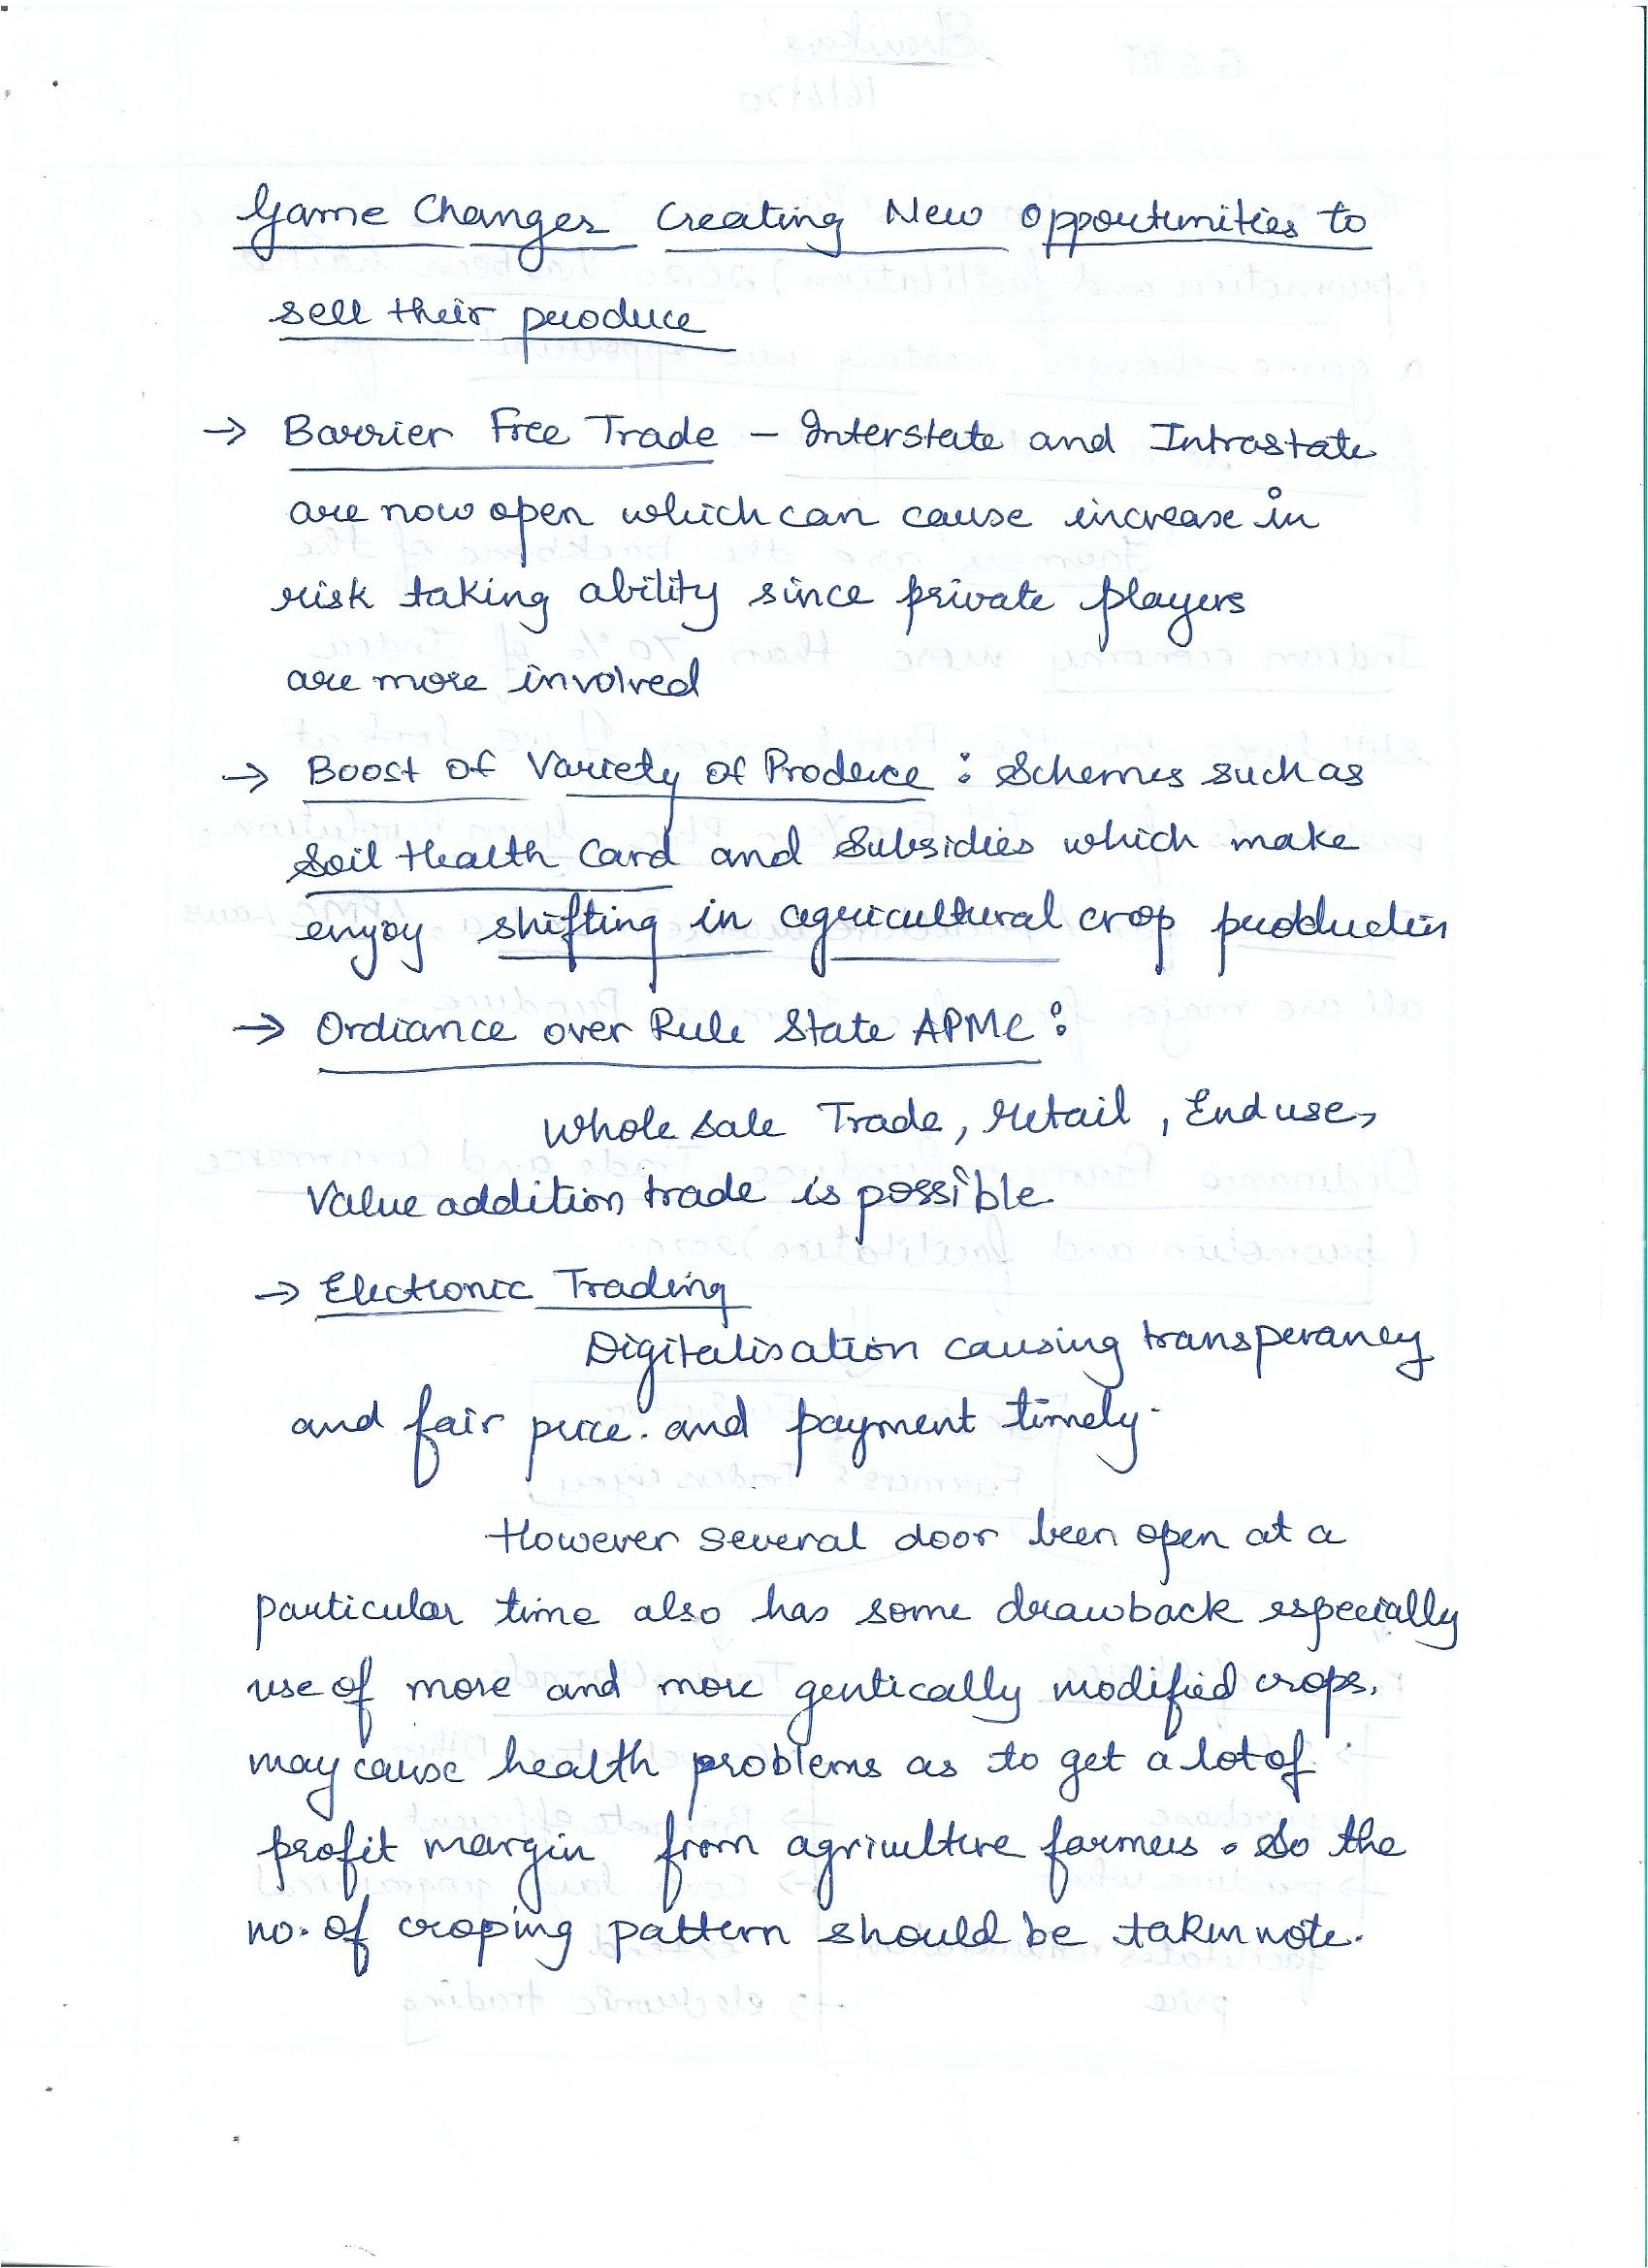 Game Changer Creating New Opportunities to
sell their produce
→ Barrier Free Trade – Interstate and Intrastate
are now open which can cause increase in
risk taking ability since private players
are more involved
→ Boost of Variety of Produce : Schemes such as
Soil Health Card and Subsidies which make
enjoy shifting in agricultural crop production
→ Ordiance over Rule State APMC :
Whole sale Trade, retail, End use,
Value addition trade is possible
→ Electronic Trading
Digitalisation causing transperancy
and fair price. and payment timely.
However several door been open at a
particular time also has some drawback especially
use of more and more gentically modified crops.
may cause health problems as to get a lot of
profit margin from agriculture farmers. So the
no. of croping pattern should be taken note.